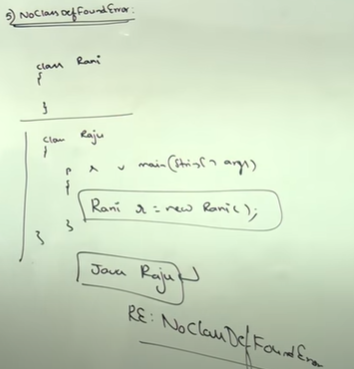 5) NoClassDefFoundError:
class Rani
{
}
class Raju
{
p s v main(String[] args)
{
Rani r = new Rani();
}
}
Java Raju↵
RE: NoClassDefFoundError